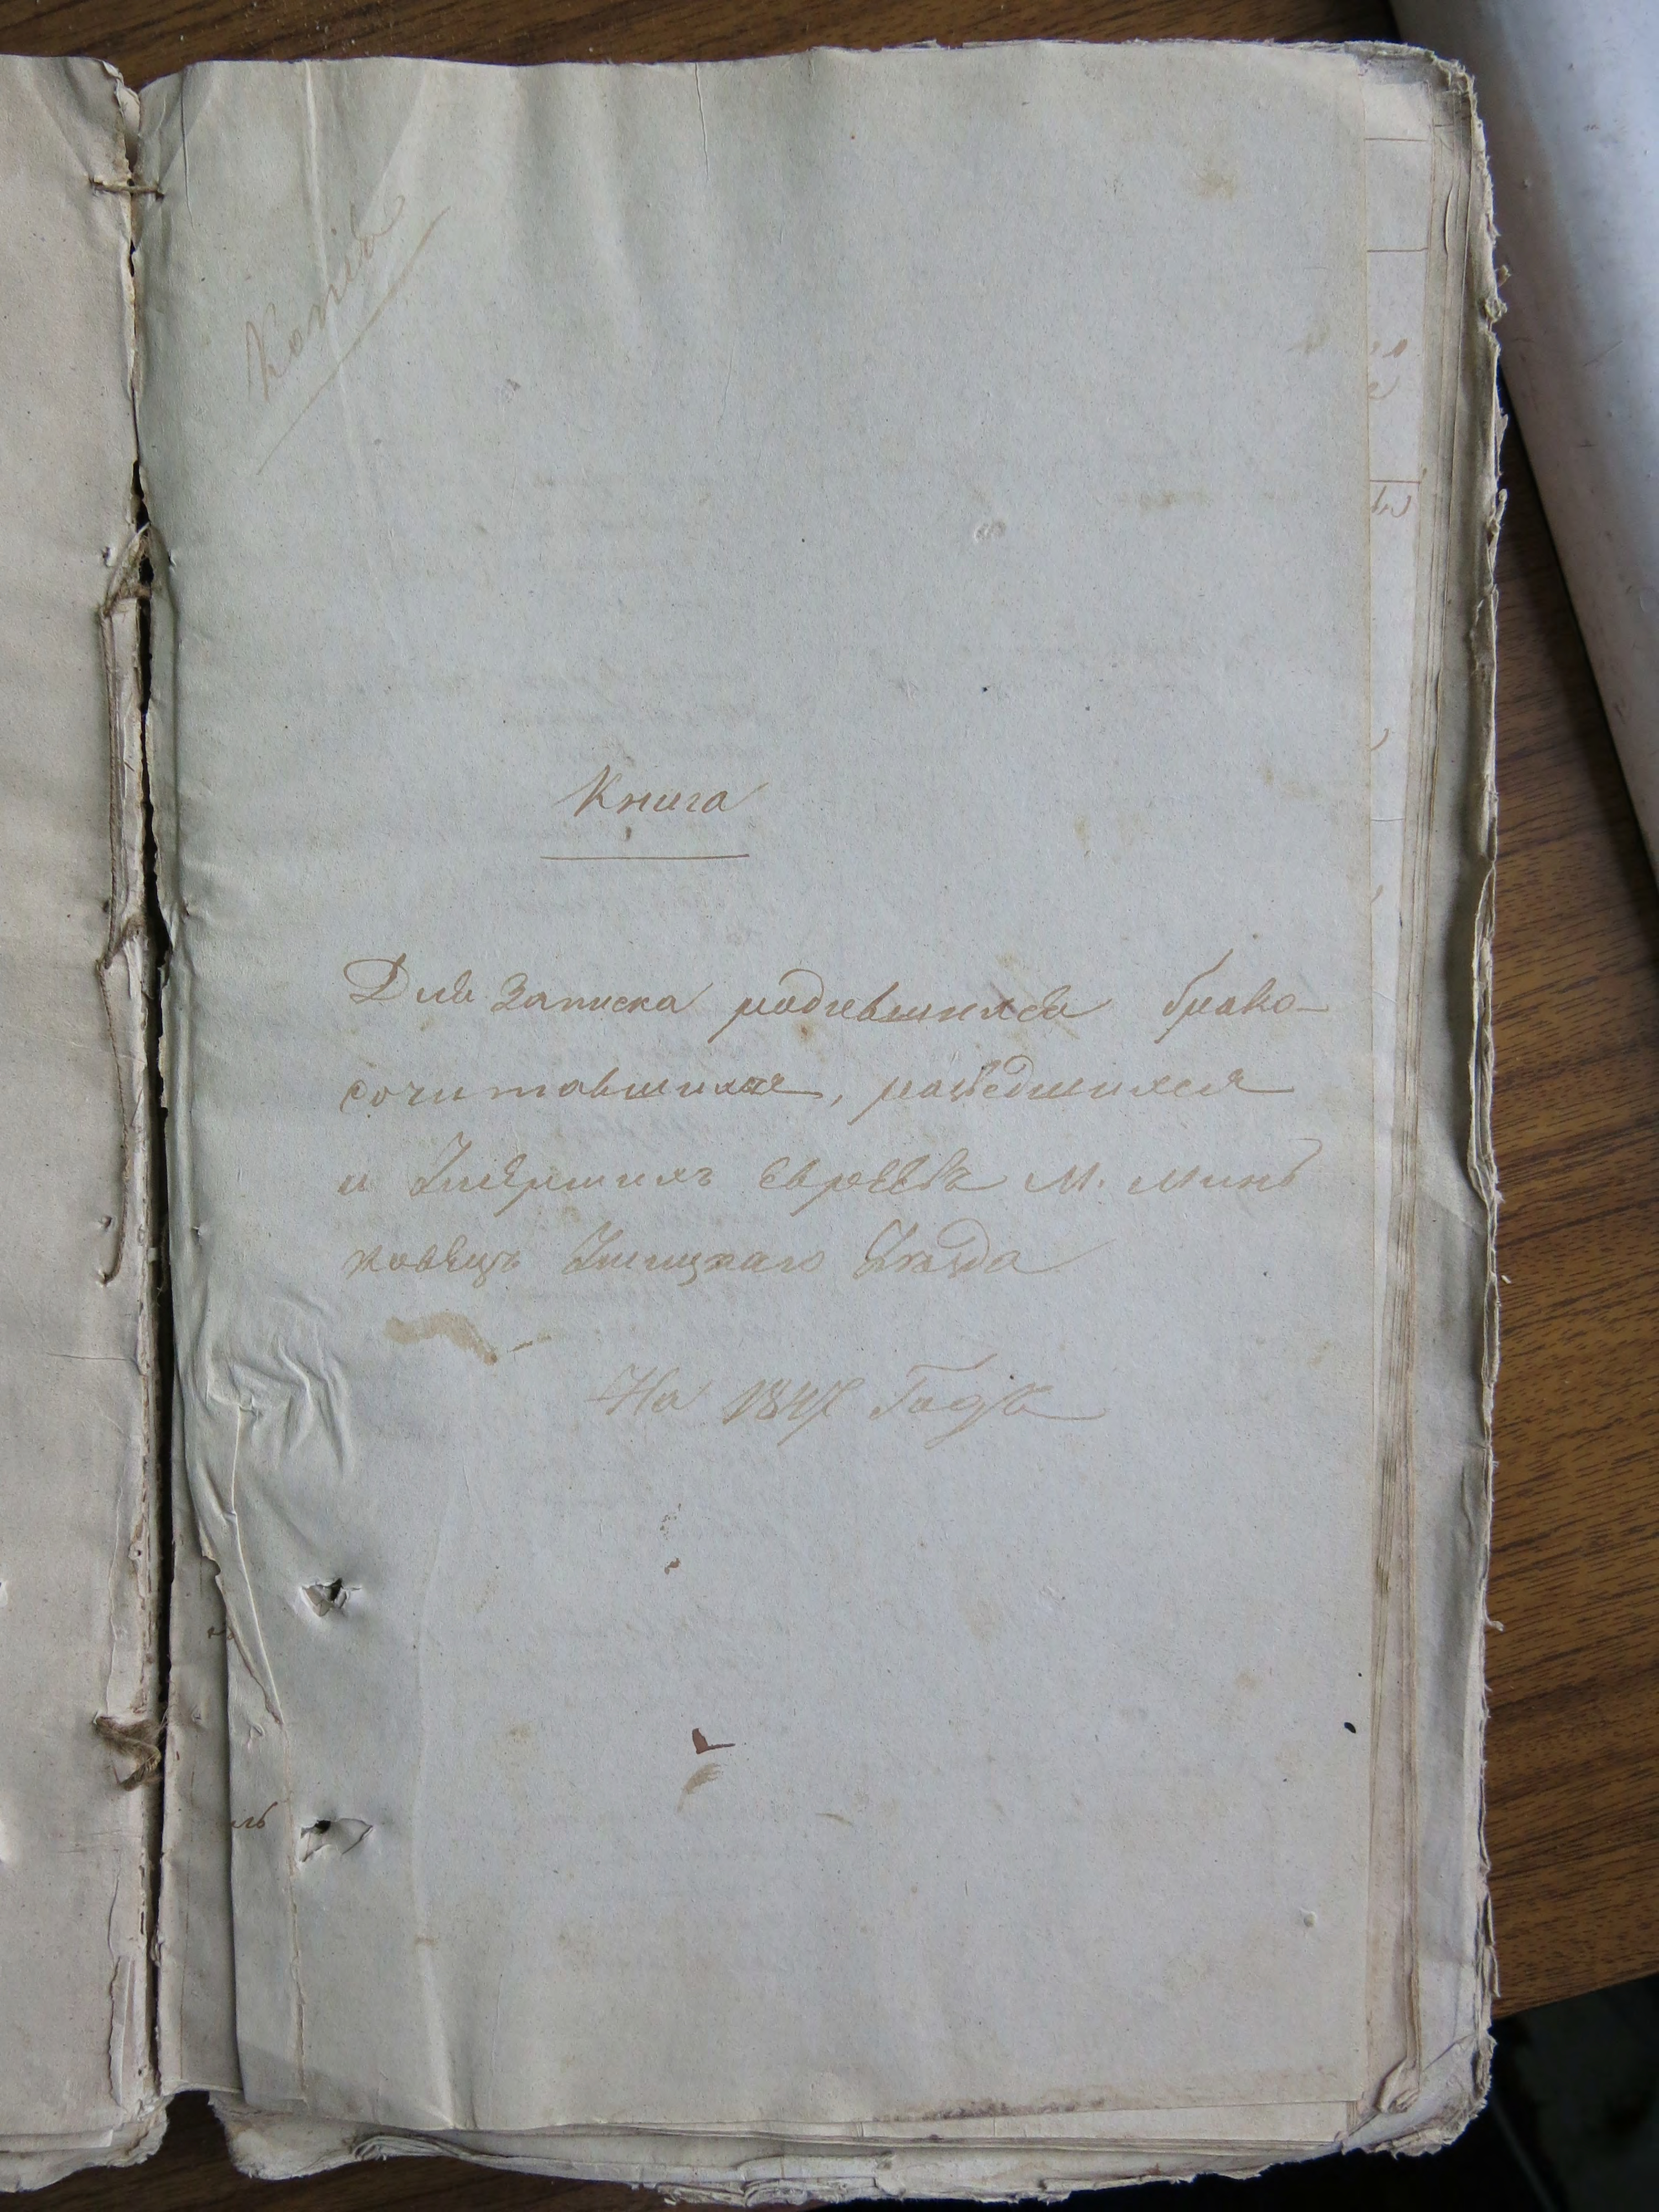 Копія
Книга
Для записка родившихся брако-
сочитавшихся, розведшихся
и Умершихъ Евреевъ М. Минь
ковецъ Ушицкаго Уезда
На 1847 Годъ